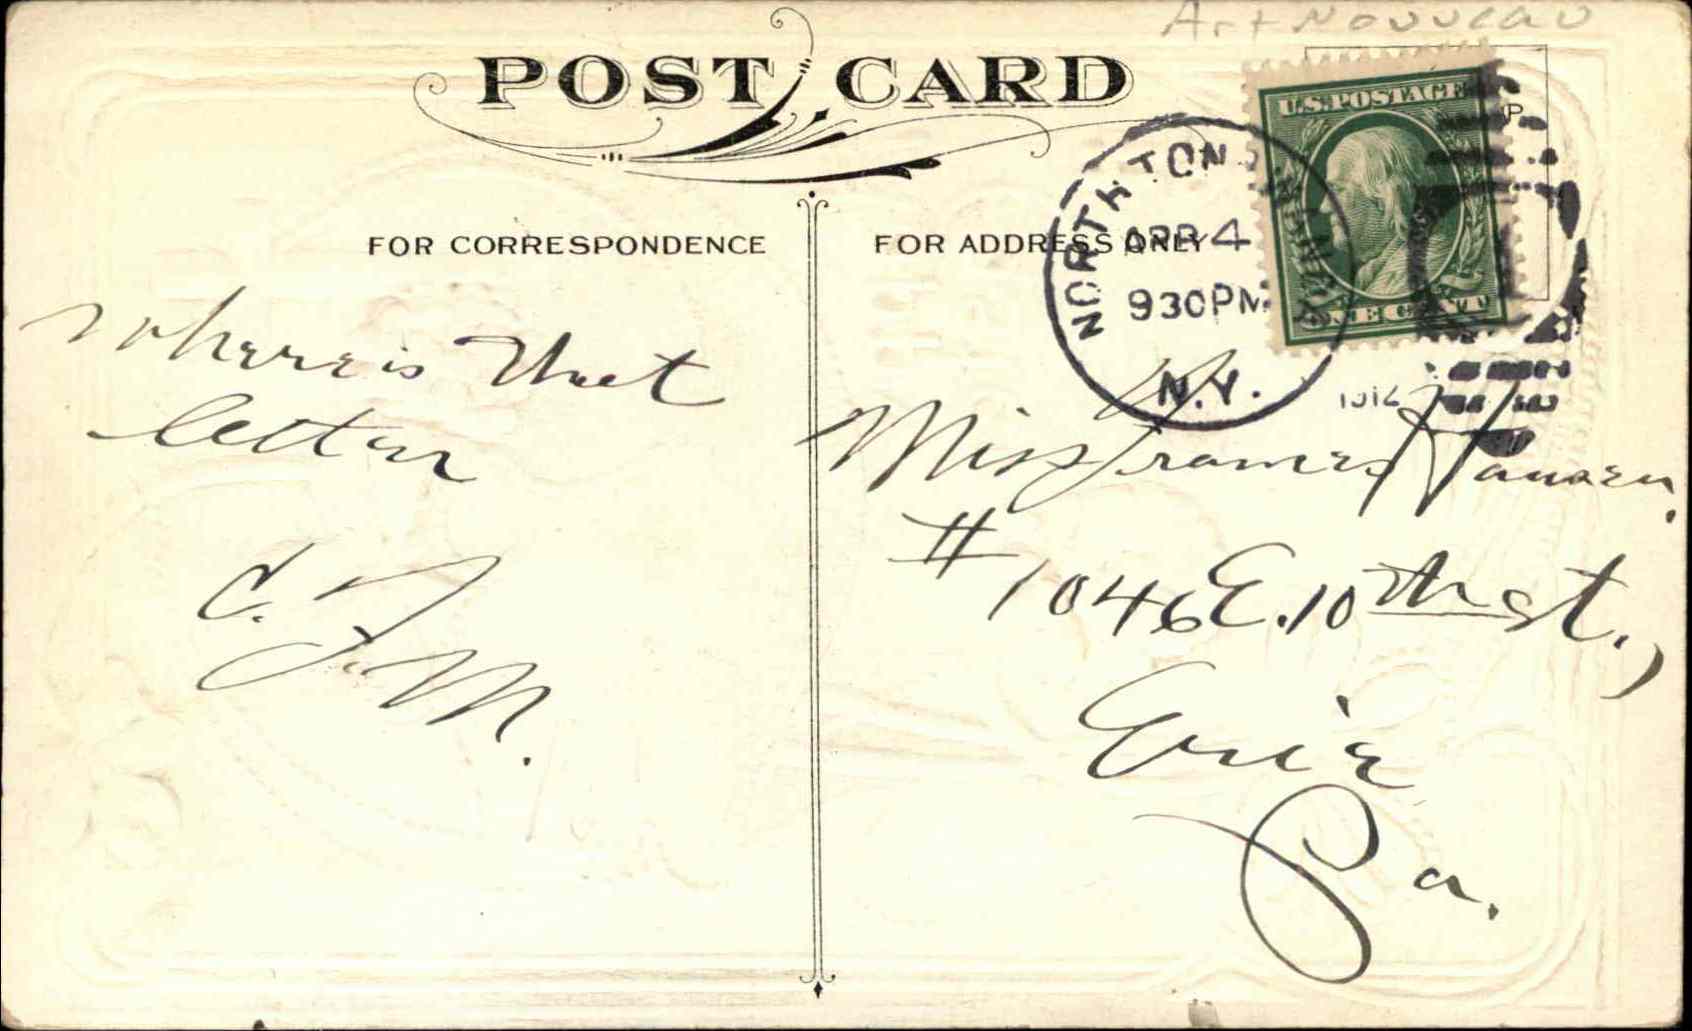 Art Nouveau
POST CARD
U.S. POSTAGE
FOR CORRESPONDENCE
FOR ADDRESS ONLY
NORTH TONAWANDA
APR 4
930PM
N.Y.
1912
ONE CENT
Where is that
letter
C.
F. M.
Miss Frances Hansen.
# 1046 E. 10th st.,
Erie
Pa.